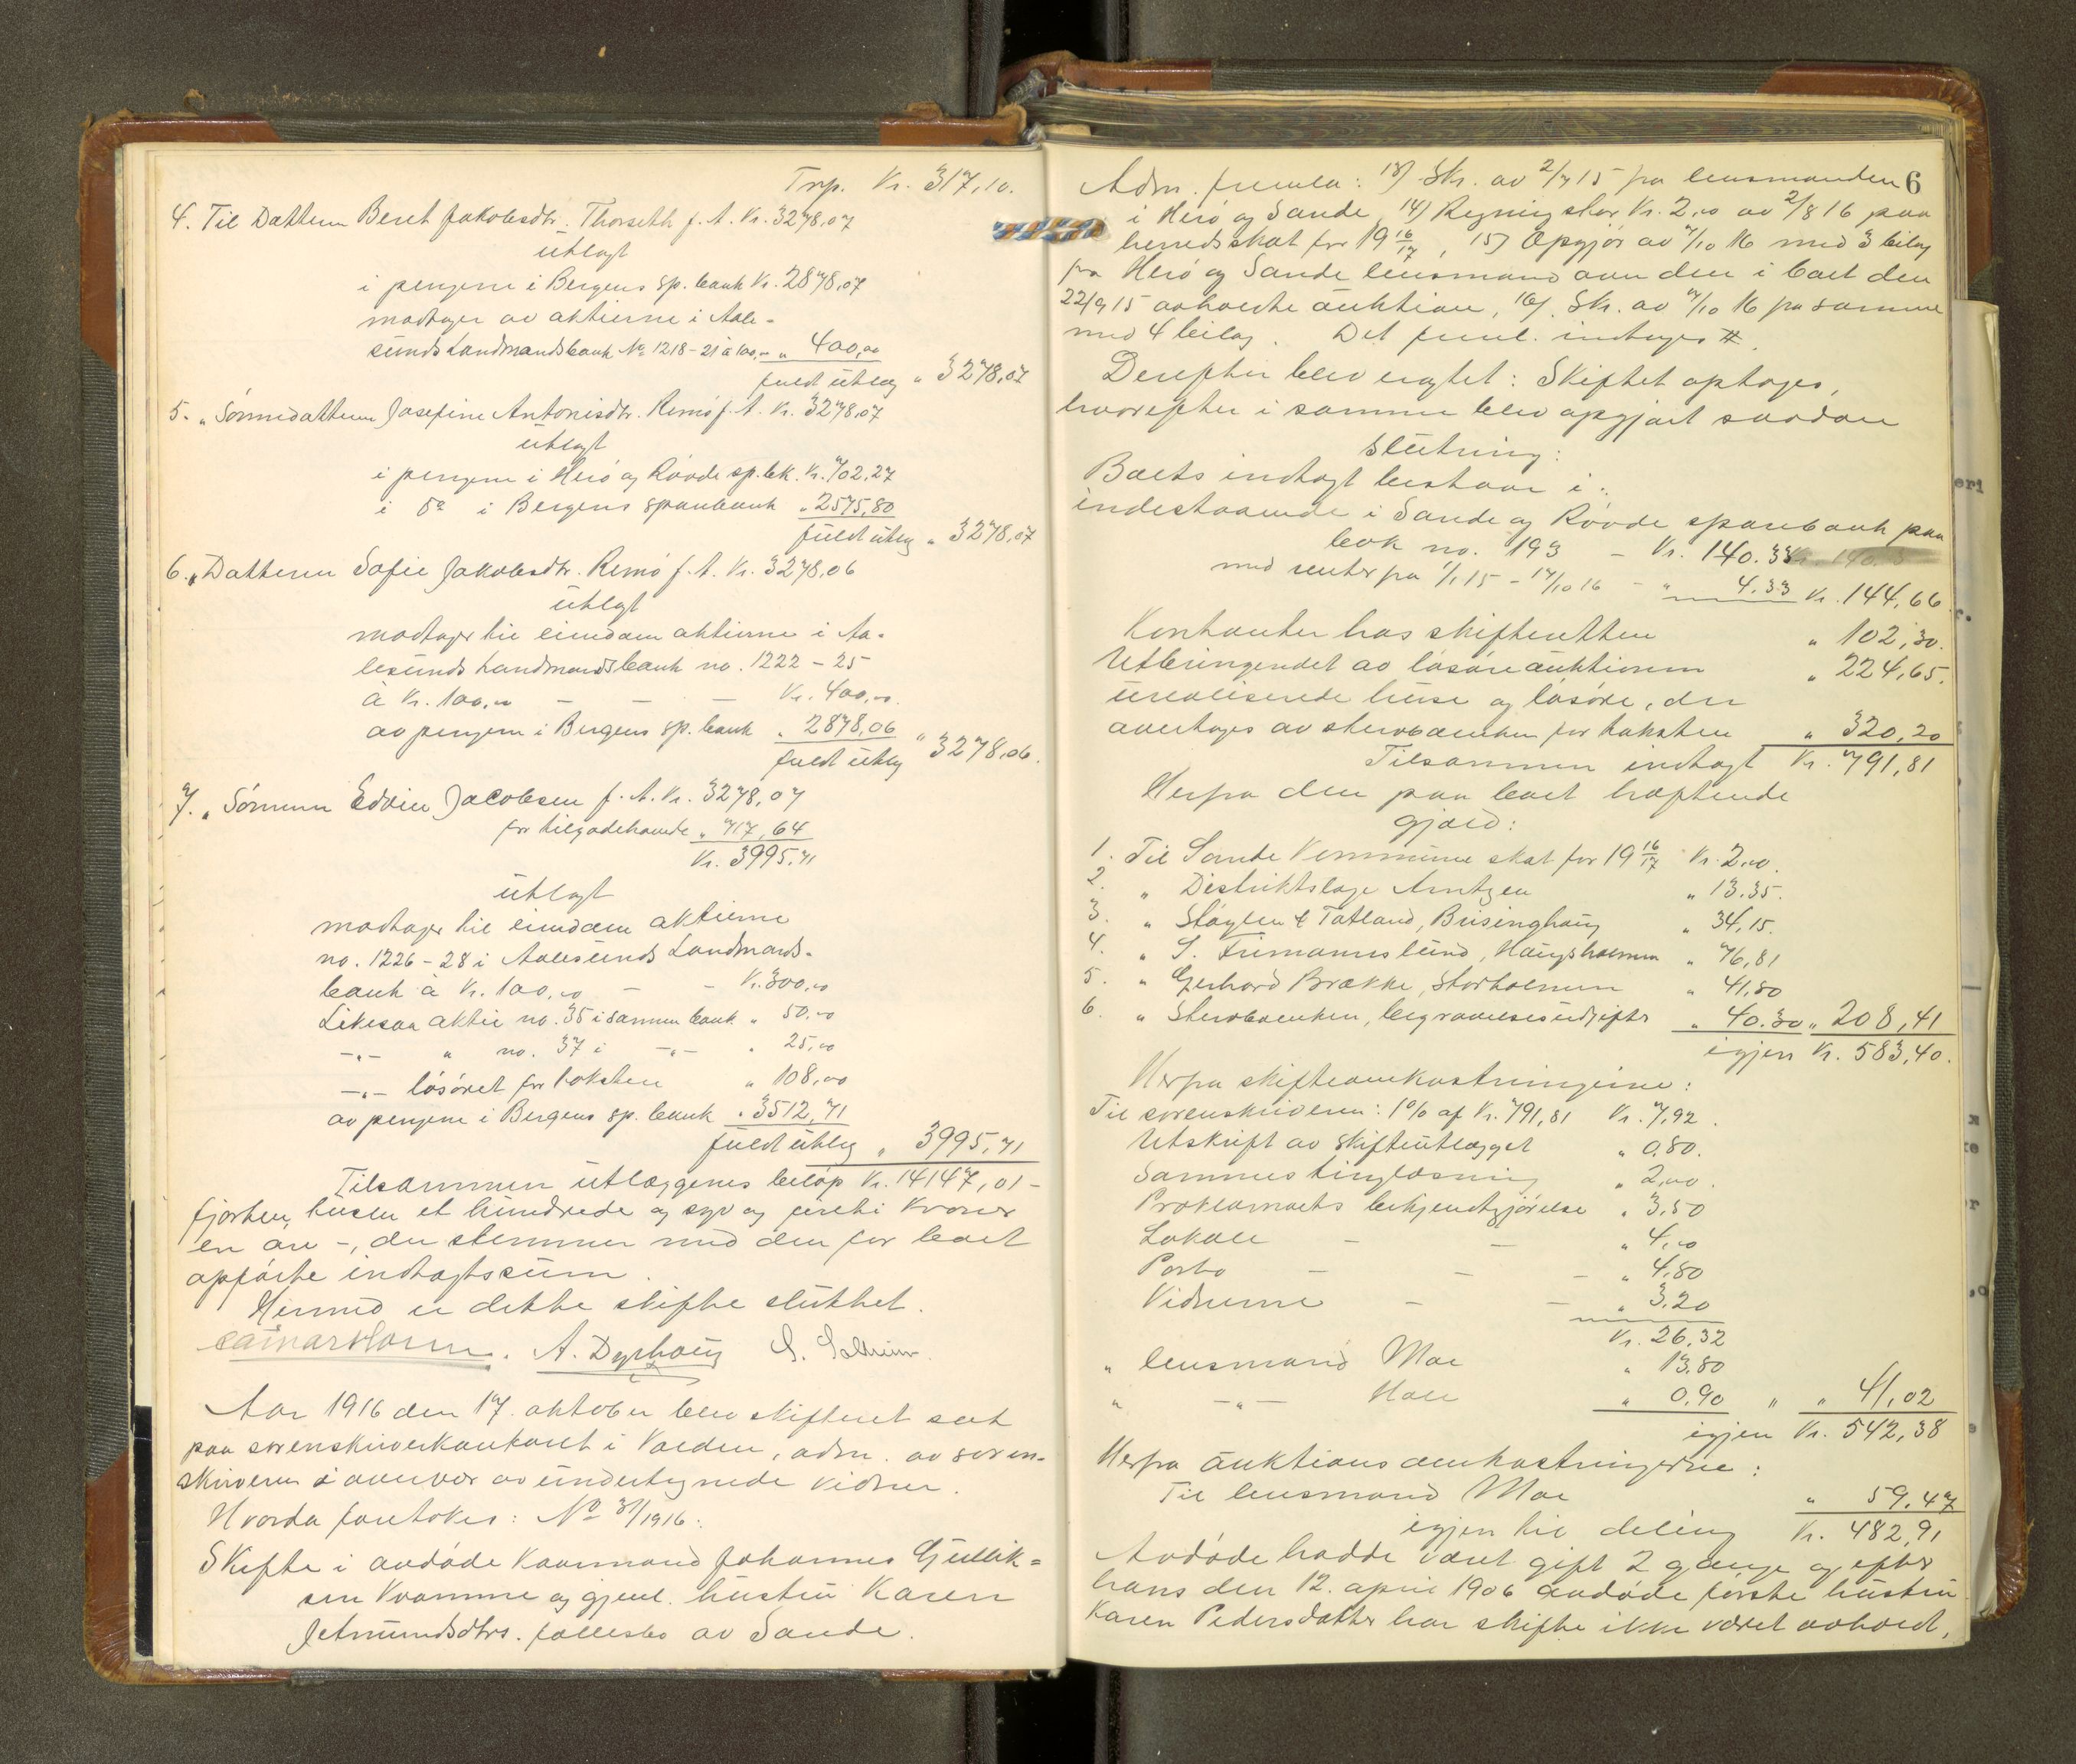 Trp. Kr. 317,10.
4. Til Datteren Beret Jakobsdtr. Thorseth f. A. Kr. 3278,07
utlagt
i pengene i Bergens sp. bank Kr. 2878,07
modtager av aktierne i Aale-
sunds Landmandsbank No 1218-21 à 100,- " 400,00
fuldt utlæg " 3278,07
5. " Sønnedatteren Josefine Antonisdtr. Remø f. A. Kr. 3278,07
utlagt
i pengene i Herø og Røvde sp.bk. Kr. 702,27
i do i Bergens sparebank " 2575,80
fuldt utlæg " 3278,07
6. " Datteren Sofie Jakobsdtr. Remø f. A. Kr. 3278,06
utlagt
modtager til eiendom aktierne i Aa-
lesunds Landmandsbank no. 1222 - 25
à Kr. 100,00 - - - Kr. 400,00
av pengene i Bergens sp. bank " 2878,06
fuldt utlæg " 3278,06.
7. " Sønnen Edvin Jacobsen f. A. Kr. 3278,07
for tilgodehavende " 717,64
Kr. 3995,71
utlagt
modtager til eiendom aktierne
no. 1226 - 28 i Aalesunds Landmands-
bank à Kr. 100,00 - - Kr. 300,00
Likesaa aktie no. 35 i samme bank " 50,00
-"- " no. 37 i -"- " 25,00
-"- løsøret for taksten " 108,00
av pengene i Bergens sp. bank " 3512,71
fuldt utlæg " 3995,71
Tilsammen utlæggenes beløp Kr. 14147,01 -
fjorten tusen et hundrede og syv og firti kroner
en øre -, der stemmer med den for boet
opførte indtægtssum.
Hermed er dette skifte sluttet.
A. Dyrhaug S.
Aar 1916 den 17. oktober blev skifteret sat
paa sorenskriverkontoret i Volden, adm. av soren-
skriveren i overvær av undertegnede vidner.
Hvorda foretokes: No 31/1916:
Skifte i avdøde kaarmand Johannes Gjullik=
sen Kvamme og gjenl. hustru Karen
Jetmundsdtrs. fællesbo av Sande.
6
Adm. fremla: 13) Skr. av 2/7 15 fra lensmanden
i Herø og Sande, 14) Regning stor Kr. 2,00 av 2/8 16 paa
herredsskat for 19 16/17, 15) Opgjør av 7/10 16 med 3 bilag
fra Herø og Sande lensmand over den i boet den
22/9 15 avholdte auktion, 16) Skr. av 7/10 16 fra samme
med 4 bilag. Det freml. indtages #.
Derefter blev eragtet: Skiftet optages,
hvorefter i samme blev opgjort saadan
slutning:
Boets indtægt bestaar i:
indestaaende i Sande og Røvde sparebank paa
bok no. 193 - Kr. 140.33
med renter fra 1/1 15 - 17/10 16 - " 4.33 Kr. 144,66
Kontanter hos skifteretten " 102,30.
Utbringendet av løsøreauktionen " 224,65.
urealiserede huse og løsøre, der
overtages av stervboenken for taksten " 320,20
Tilsammen indtægt Kr. 791,81
Herfra den paa boet hæftende
gjæld:
1. Til Sande Kommune skat for 19 16/17 Kr. 2,00.
2. " Distriktslæge Arntzen " 13.35.
3. " Støylen & Tatland, Brisinghaug " 34,15.
4. " S. Friemannslund, Haugsholmen " 76,81
5. " Gerhard Brække, Storholmen " 41,80
6. " Stervboenken, begravelsesutgifter " 40.30 " 208,41
igjen Kr. 583,40.
Herfra skifteomkostningerne:
Til sorenskriveren: 1% af Kr. 791,81 Kr. 7,92.
Utskrift av skifteutlægget " 0,80.
Sammes tinglæsning " 2,00.
Proklamaets bekjendtgjørelse " 3,50
Lokale - - " 4,00
Porto - - - " 4,80
Vidnerne - - " 3.20
Kr. 26.32
" lensmand Moe " 13.80
" -"- Hole " 0,90 " " 41,02
igjen Kr. 542,38
Herfra auktionsomkostningerne:
Til lensmand Moe " 59,47
igjen til deling Kr. 482,91
Avdøde hadde været gift 2 gange og efter
hans den 12. april 1906 avdøde første hustru
Karen Pedersdatter har skifte ikke været avholdt,